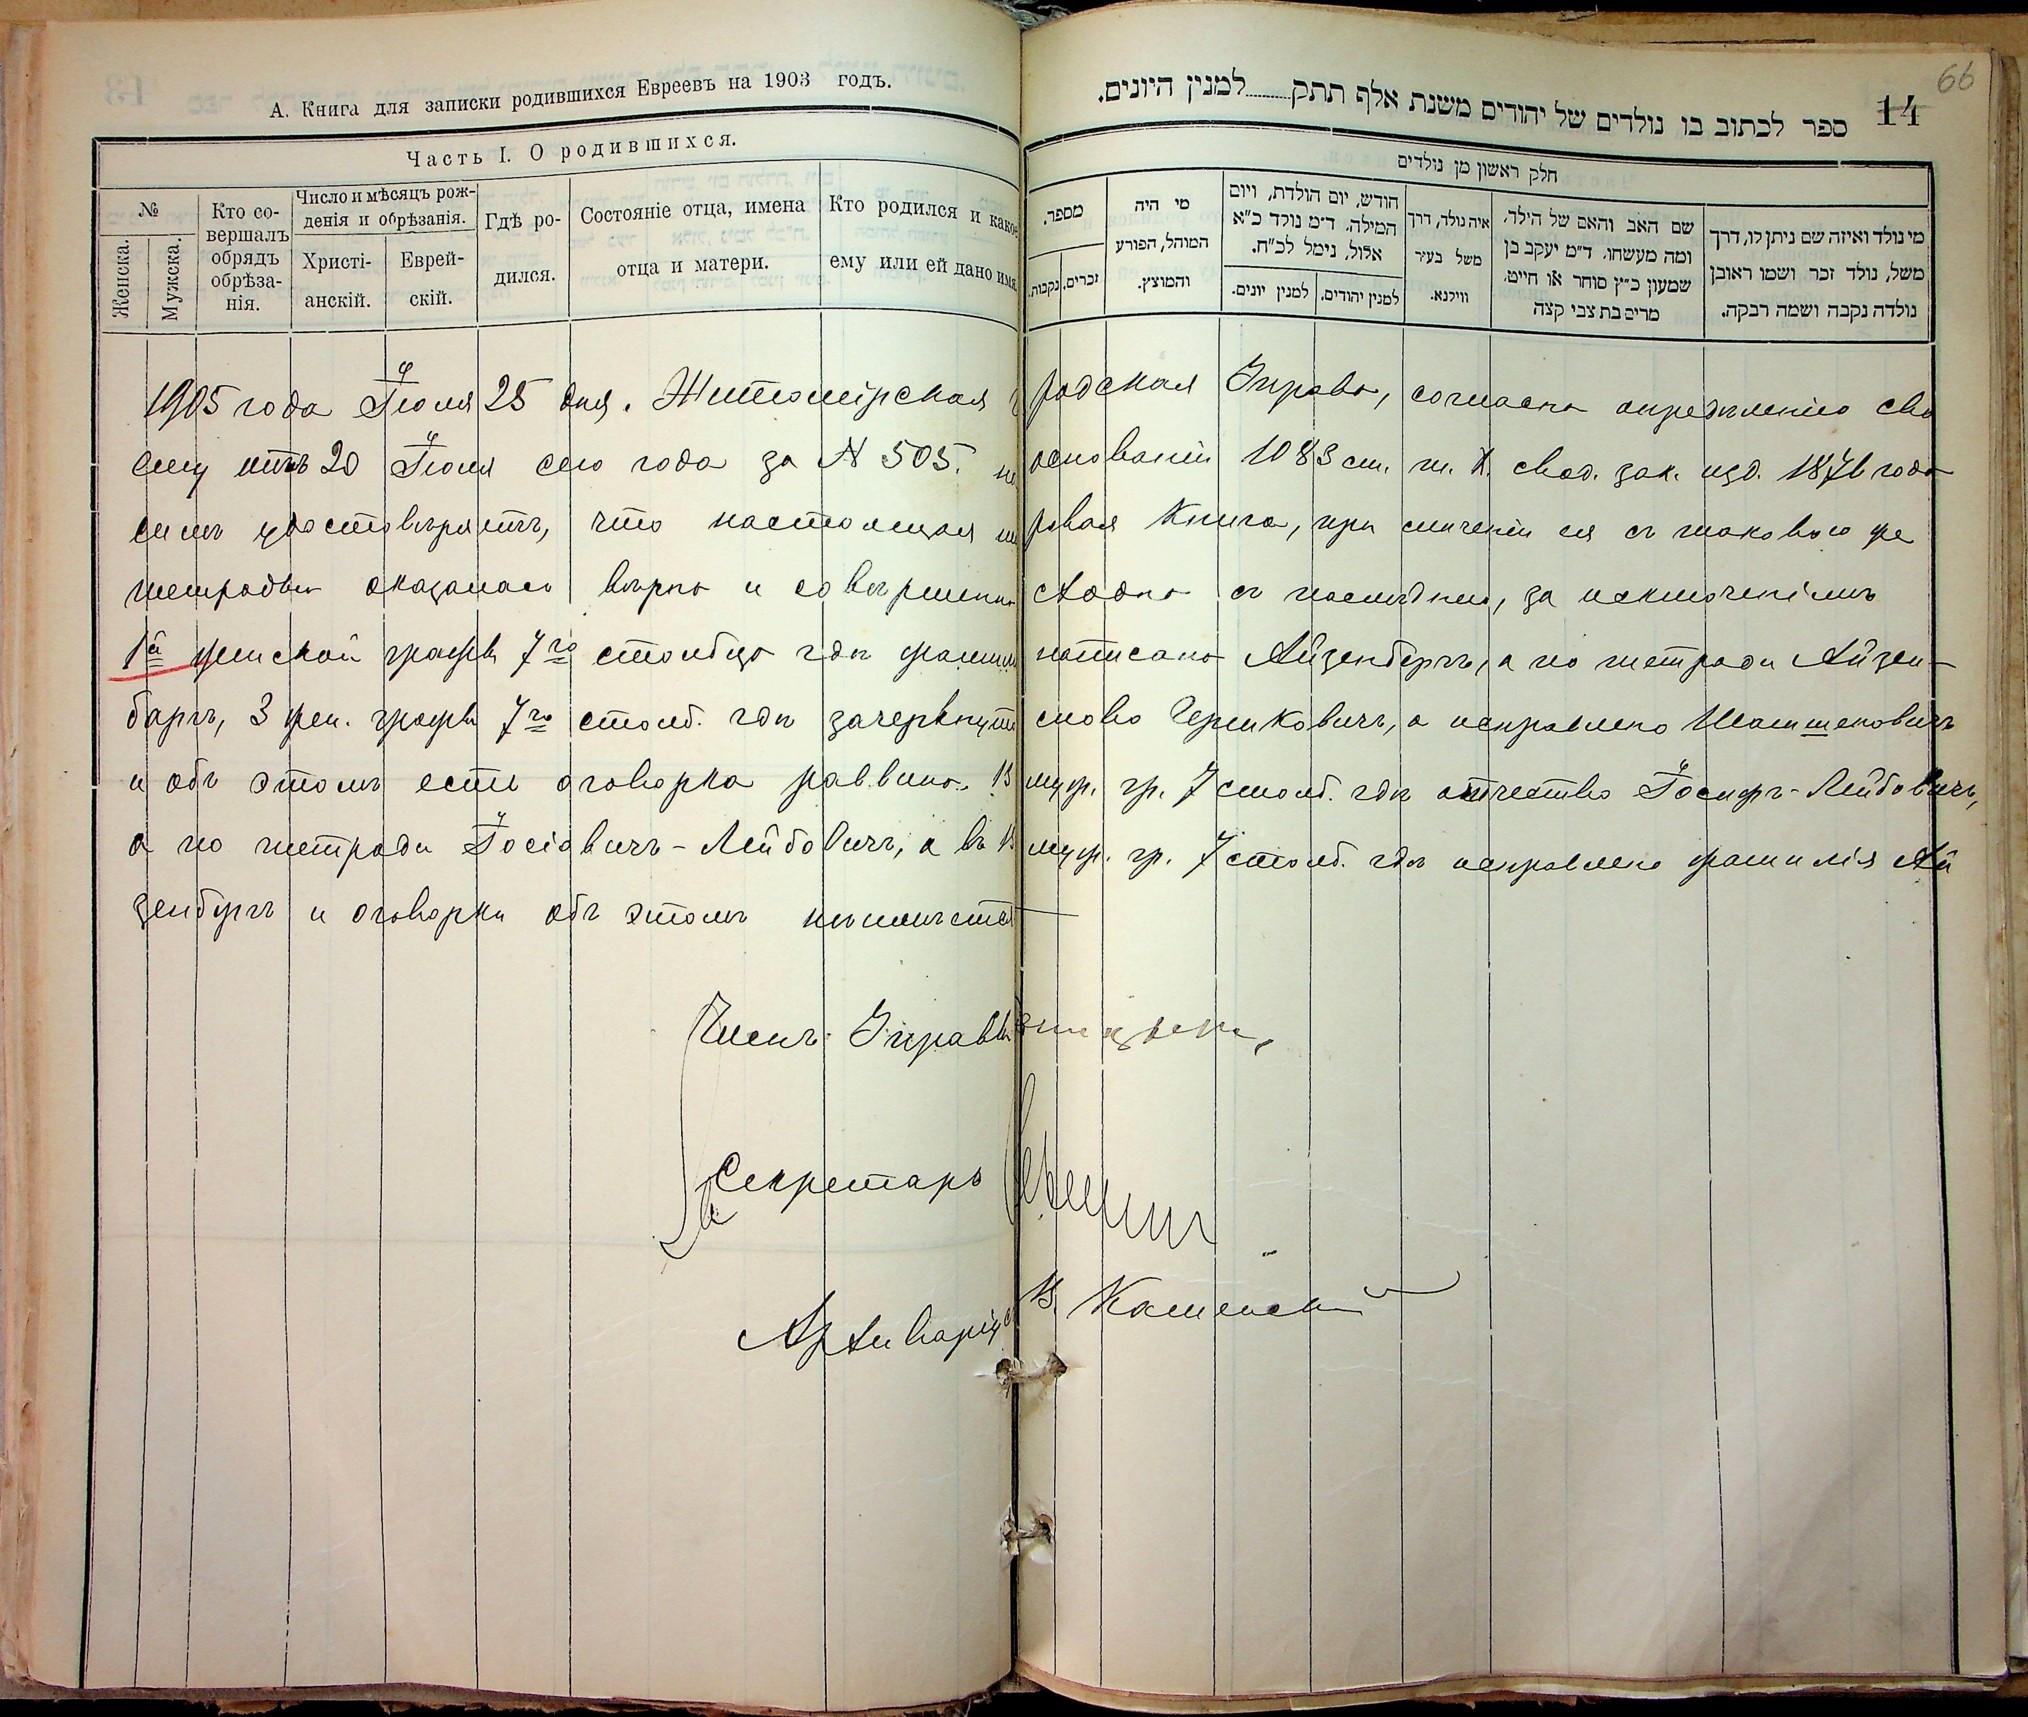 А. Книга для записки родившихся Евреевъ на 1903 годъ.
Часть I. О родившихся.
№
Женска.
Мужска.
Кто со-
вершалъ
обрядъ
обрѣза-
нія.
Число и мѣсяцъ рож-
денія и обрѣзанія.
Христі-
анскій.
Еврей-
скій.
Гдѣ ро-
дился.
Состояніе отца, имена
отца и матери.
Кто родился и какое
ему или ей дано имя.
66
14
ספר לכתוב בו נולדים של יהודים משנת אלף תתק למנין היונים.
חלק ראשון מן נולדים
מספר.
נקבות.
זכרים.
מי היה
המוהל, הפורע
והמוצץ.
חודש, יום הולדת, ויום
המילה. ד״מ נולד כ״א
אלול, נימל לכ״ח.
למנין יונים.
למנין יהודים.
איה נולד, דרך
משל בעיר
ווילנא.
שם האב והאם של הילד.
ומה מעשהו. ד״מ יעקב בן
שמעון כ״ץ סוחר או חייט.
מרים בת צבי קצה
מי נולד ואיזה שם ניתן לו, דרך
משל, נולד זכר ושמו ראובן
נולדה נקבה ושמה רבקה.
1905 года Іюля 25 дня. Житомірская Городская Управа, согласно опредѣленію сво
ему отъ 20 Іюля сего года за N 505. на основаніи 1083 ст. т. X. свод. зак. изд. 1876 года
симъ удостовѣряетъ, что настоящая шнуровая Книга, при сличеніи ея съ таковою же
тетрадью оказалась вѣрна и совершенно сходна съ послѣднею, за исключеніемъ
1й женской графы 7го столбца гдѣ фамилія написана Айзенбергъ, а по тетради Айзен-
баргъ, 3 жен. графы 7го столб. гдѣ зачеркнуто слово Гершковичъ, а исправлено
и объ этомъ есть оговорка раввина. 13 муж. гр. 7 столб. гдѣ отчество Іосифъ-Лейбовичъ,
а по тетради Іосіовичъ-Лейбовичъ, а въ 15 муж. гр. 7 столб. гдѣ исправлена фамилія Ай
зенбергъ и оговорки объ этомъ не имѣется
Членъ Управы
Секретарь
Архиваріусъ В. Каменскій